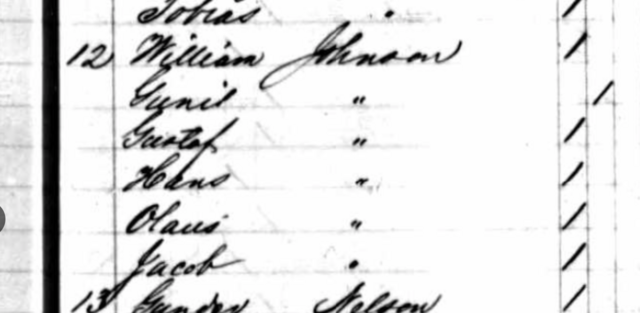 Tobias "
12 William Johnson /
Gunil " /
Gustaf " /
Hans " /
Olaus " /
Jacob " /
13 Gunder Nelson /